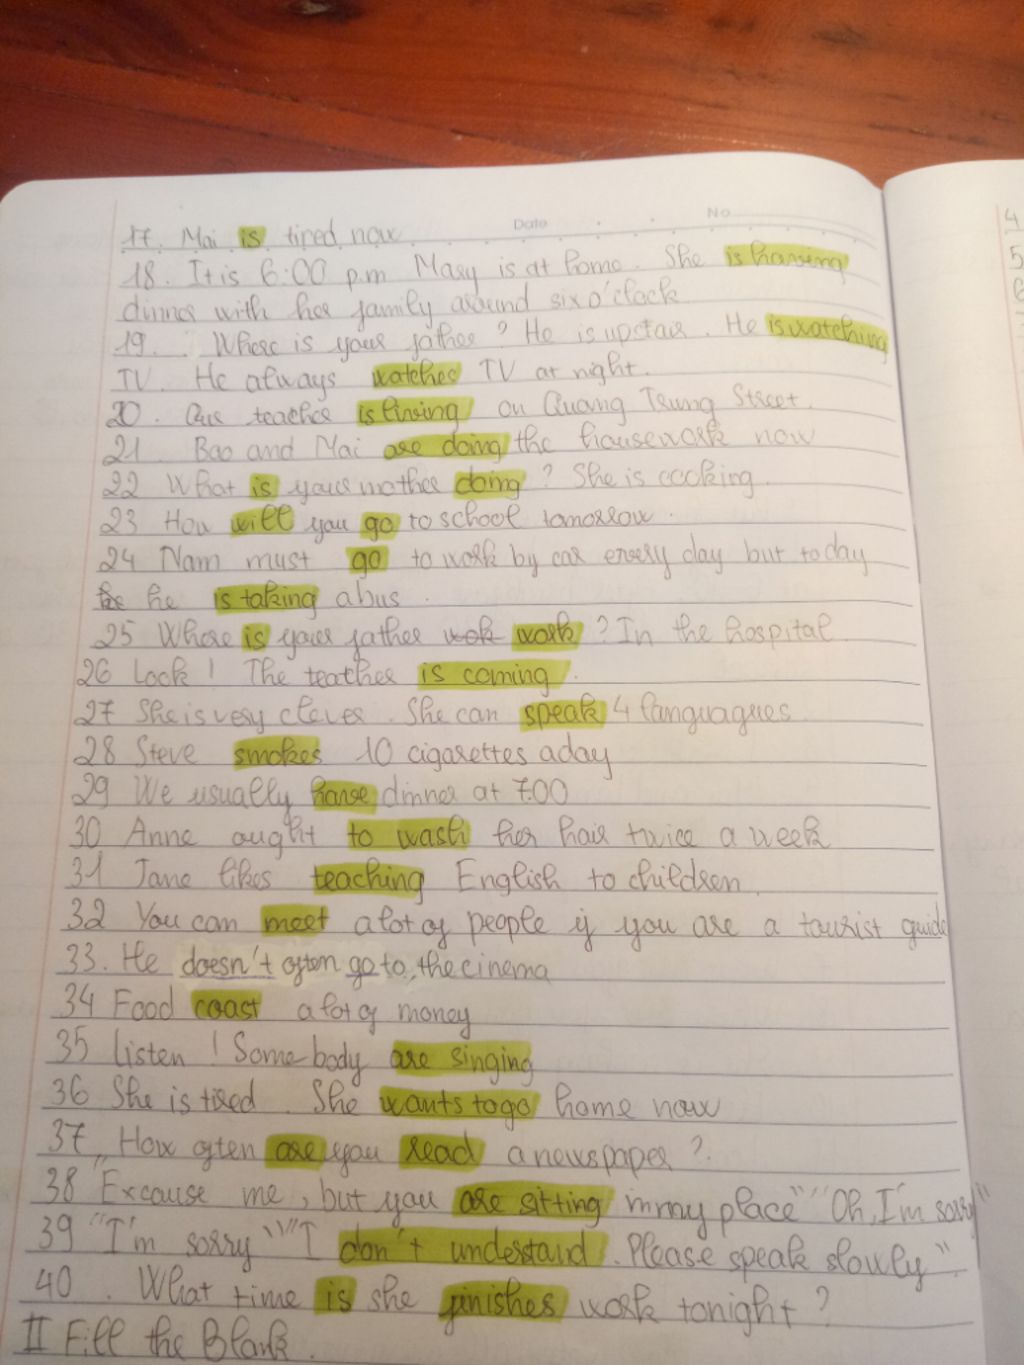 Date No
17. Mai is tired now
18. It is 6:00 p.m Mary is at home. She is having
dinner with her family around six o'clock
19. Where is your father? He is upstair. He is watching
TV. He always watches TV at night.
20. Our teacher is living on Quang Trung Street.
21. Bao and Mai are doing the housework now
22 What is your mother doing? She is cooking.
23 How will you go to school tomorrow.
24 Nam must go to work by car every day but today
he is taking a bus.
25 Where is your father work? In the hospital
26 Look! The teacher is coming.
27 She is very clever. She can speak 4 languagues
28 Steve smokes 10 cigarettes a day
29 We usually have dinner at 7.00
30 Anne ought to wash her hair twice a week
31 Jane likes teaching English to children.
32 You can meet a lot of people if you are a tourist guide
33. He doesn't often go to, the cinema
34 Food coast a lot of money
35 Listen! Somebody are singing
36 She is tired. She wants to go home now
37, How often are you read a newspaper?
38 "Excause me, but you are sitting in my place" "Oh, I'm sorry"
39 "I'm sorry" "I don't understand. Please speak slowly"
40. What time is she finishes work tonight?
II Fill the Blank.
4
5
6